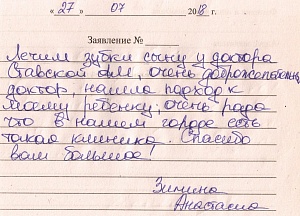 « 27 » 07 2018 г.
Заявление № ____
Лечим зубки сыну у доктора
Ставской А.М., очень доброжелательный
доктор, нашла подход к
моему ребенку, очень рада
что в нашем городе есть
такая клиника. Спасибо
вам большое!
Зимина
Анастасия